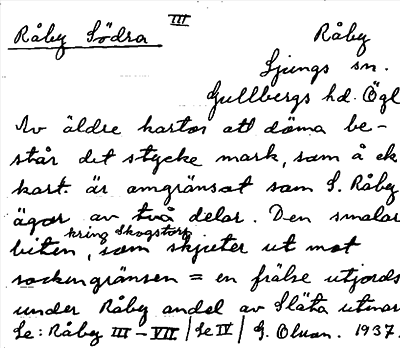 Råby Södra III Råby
Ljungs sn.
Gullbergs hd. Ögl
Av äldre kartor att döma be-
står det stycke mark, som å ek
kart. är omgränsat som S. Råby
ägor av två delar. Den smalar
kring Skogstorp
biten, som skjuter ut mot
sockengränsen = en frälse utjords
under Råby andel av Släta utmar
Se: Råby III–VII | Se IV | G. Olsson. 1937.